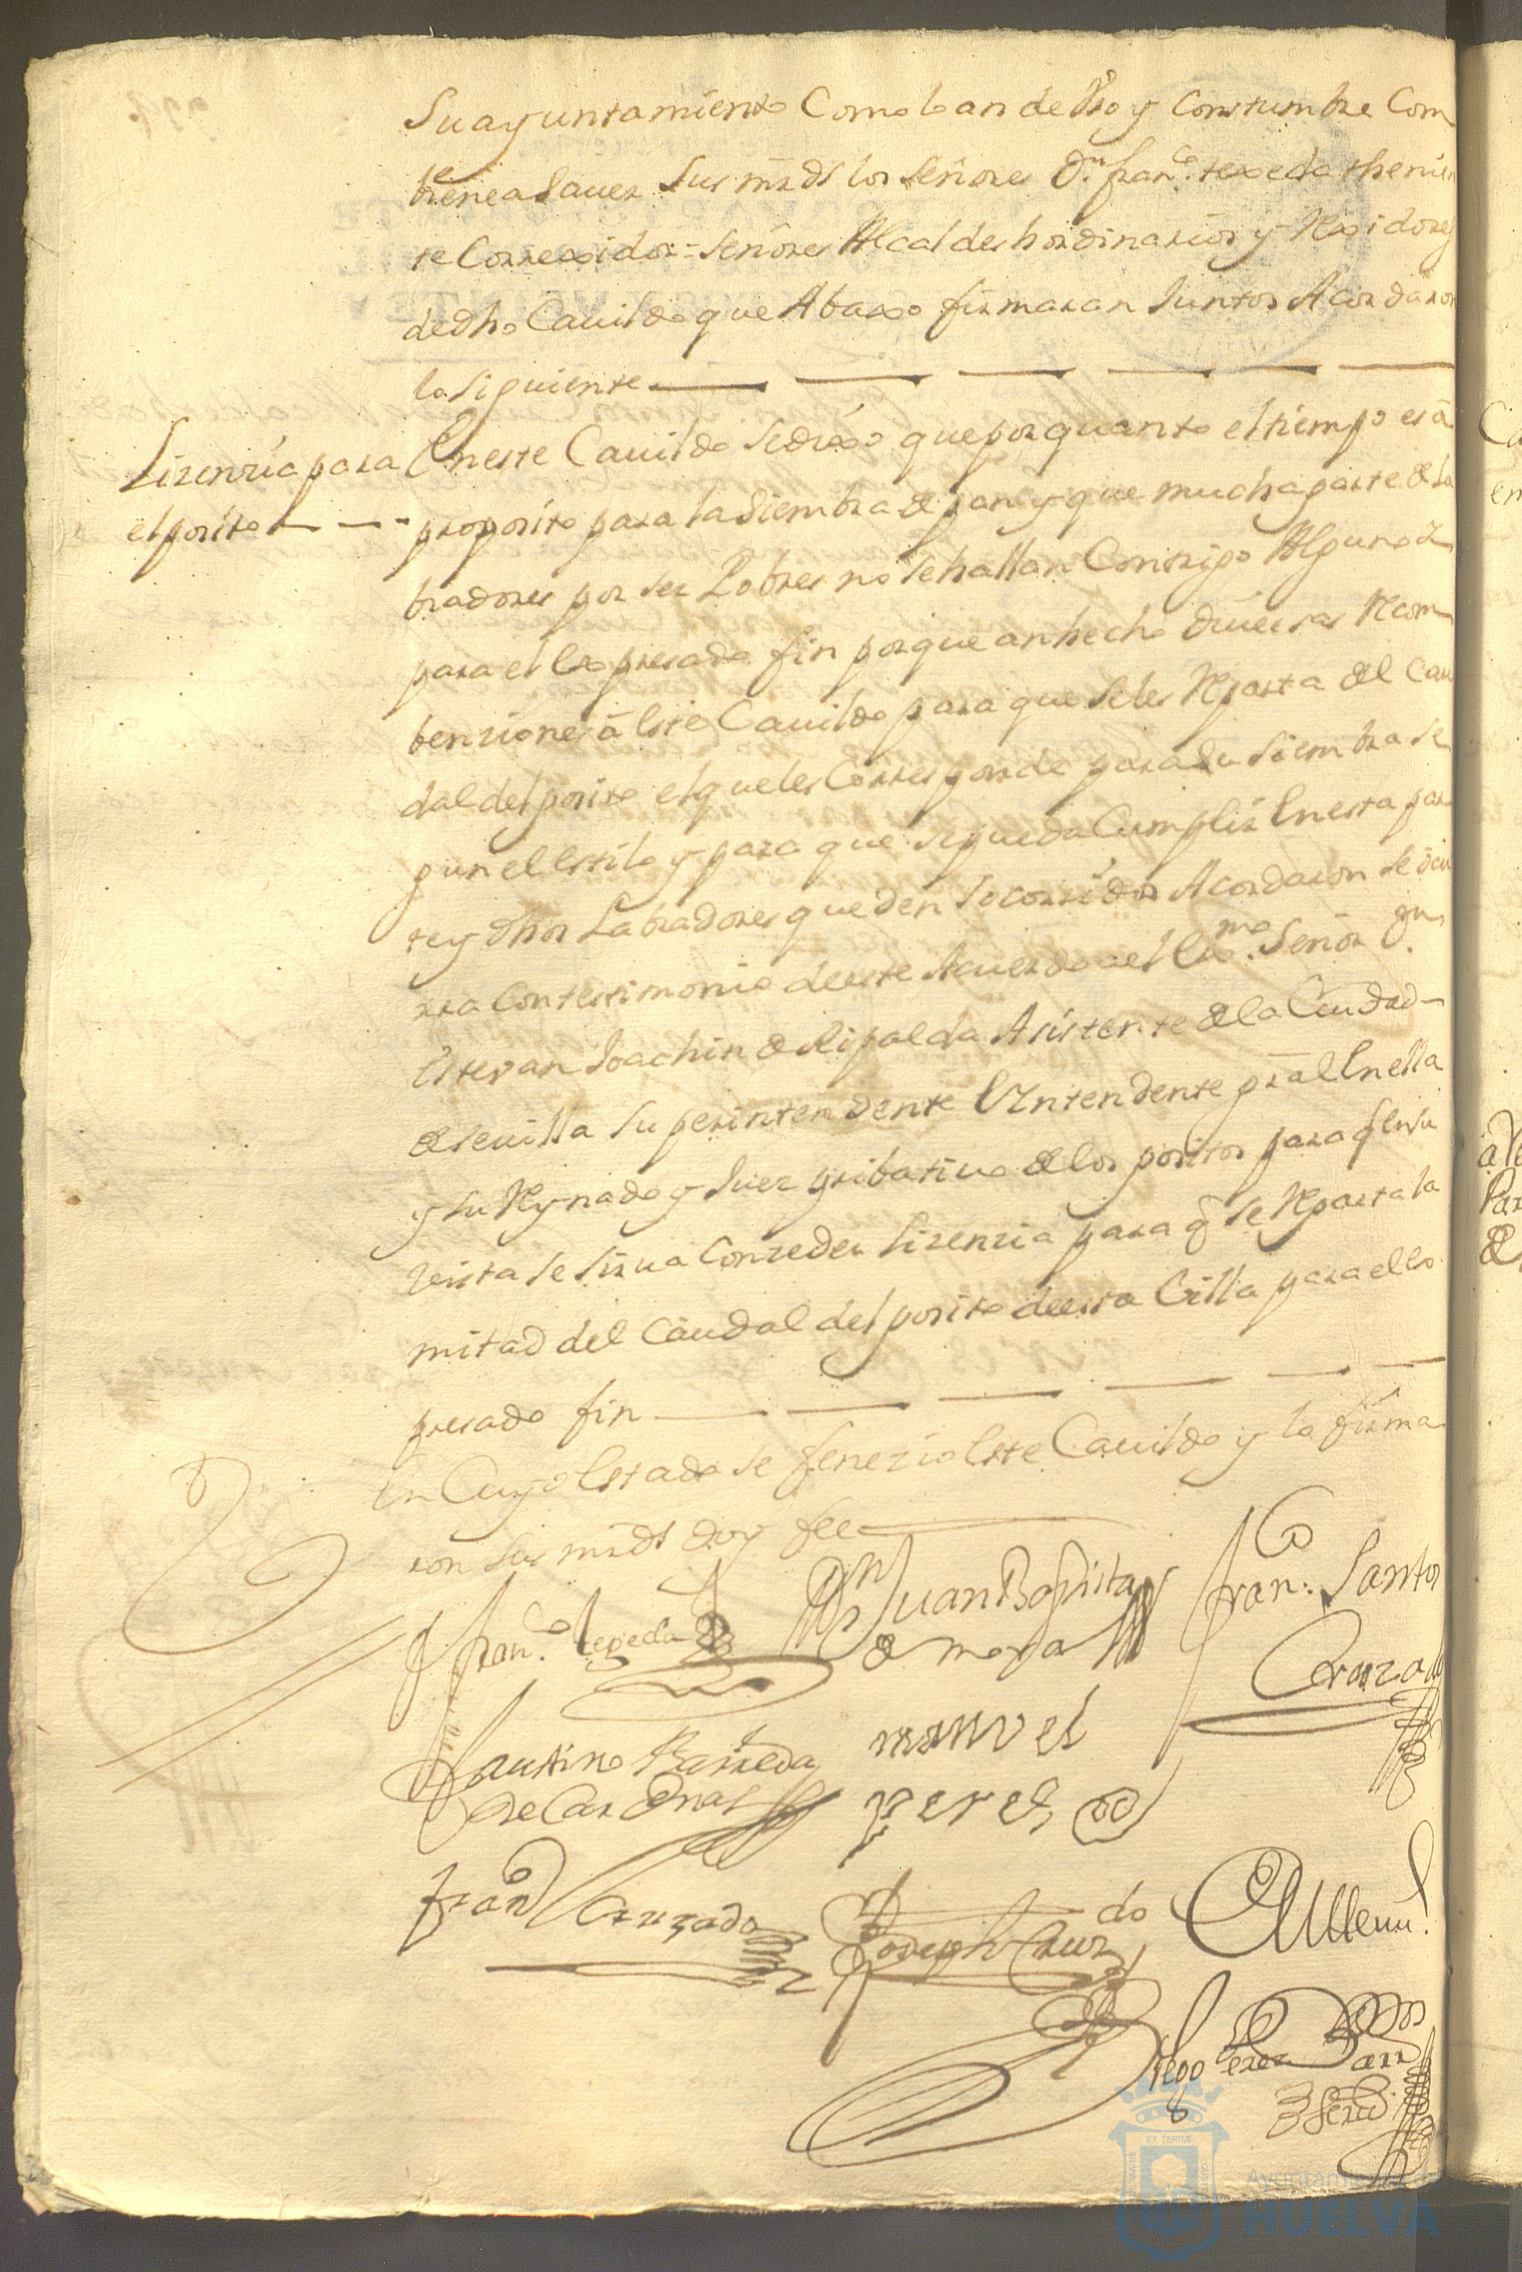 Su ayuntamiento Como lo an de Vso y Constumbre Com
biene a Sauer Sus mrds los señores Dn. franco. texeda theni
te Correxidor = señores Alcaldes hordinarios y Rexidores
de dho Cauildo que Abaxo firmaran Juntos Acordaron
lo siguiente
Lizenzia para
el posito
En este Cauildo se dixo que por quanto el tiempo es a
proposito para la Siembra de pan y que mucha parte de la
bradores por ser Pobres no se hallan Con trigo Alguno
para el Expresado fin porque an hecho diuersas Recom
benziones a Este Cauildo para que se les Reparta del Cau
dal del posito el que les Corresponde para su siembra se
gun el Estilo y para que se pueda Cumplir En esta par
te y dhos Labradores queden socorridos Acordaron se ocu
rra Con testimonio de este Acuerdo a el Exmo. Señor Dn.
Estevan Joachin de Ripalda Asistente de la Ciudad
de seuilla superintendente E Yntendente gral En ella
y su Reynado y Juez pribatiuo de los positos para q en su
vista se sirua Conzeder lizenzia para q se Reparta la
mitad del Caudal del posito de esta Villa para el ex
presado fin
En Cuyo Estado se fenezio Este Cauildo y lo firma
ron sus mrds doy fee
franco. texeda
Dn Juan Baptista
de mora
Fran. Santos
Cruzado
faustino Barreda
de Cardenas
manuel
peres
Fran Cruzado
Joseph Cruz
do
Diego Perez